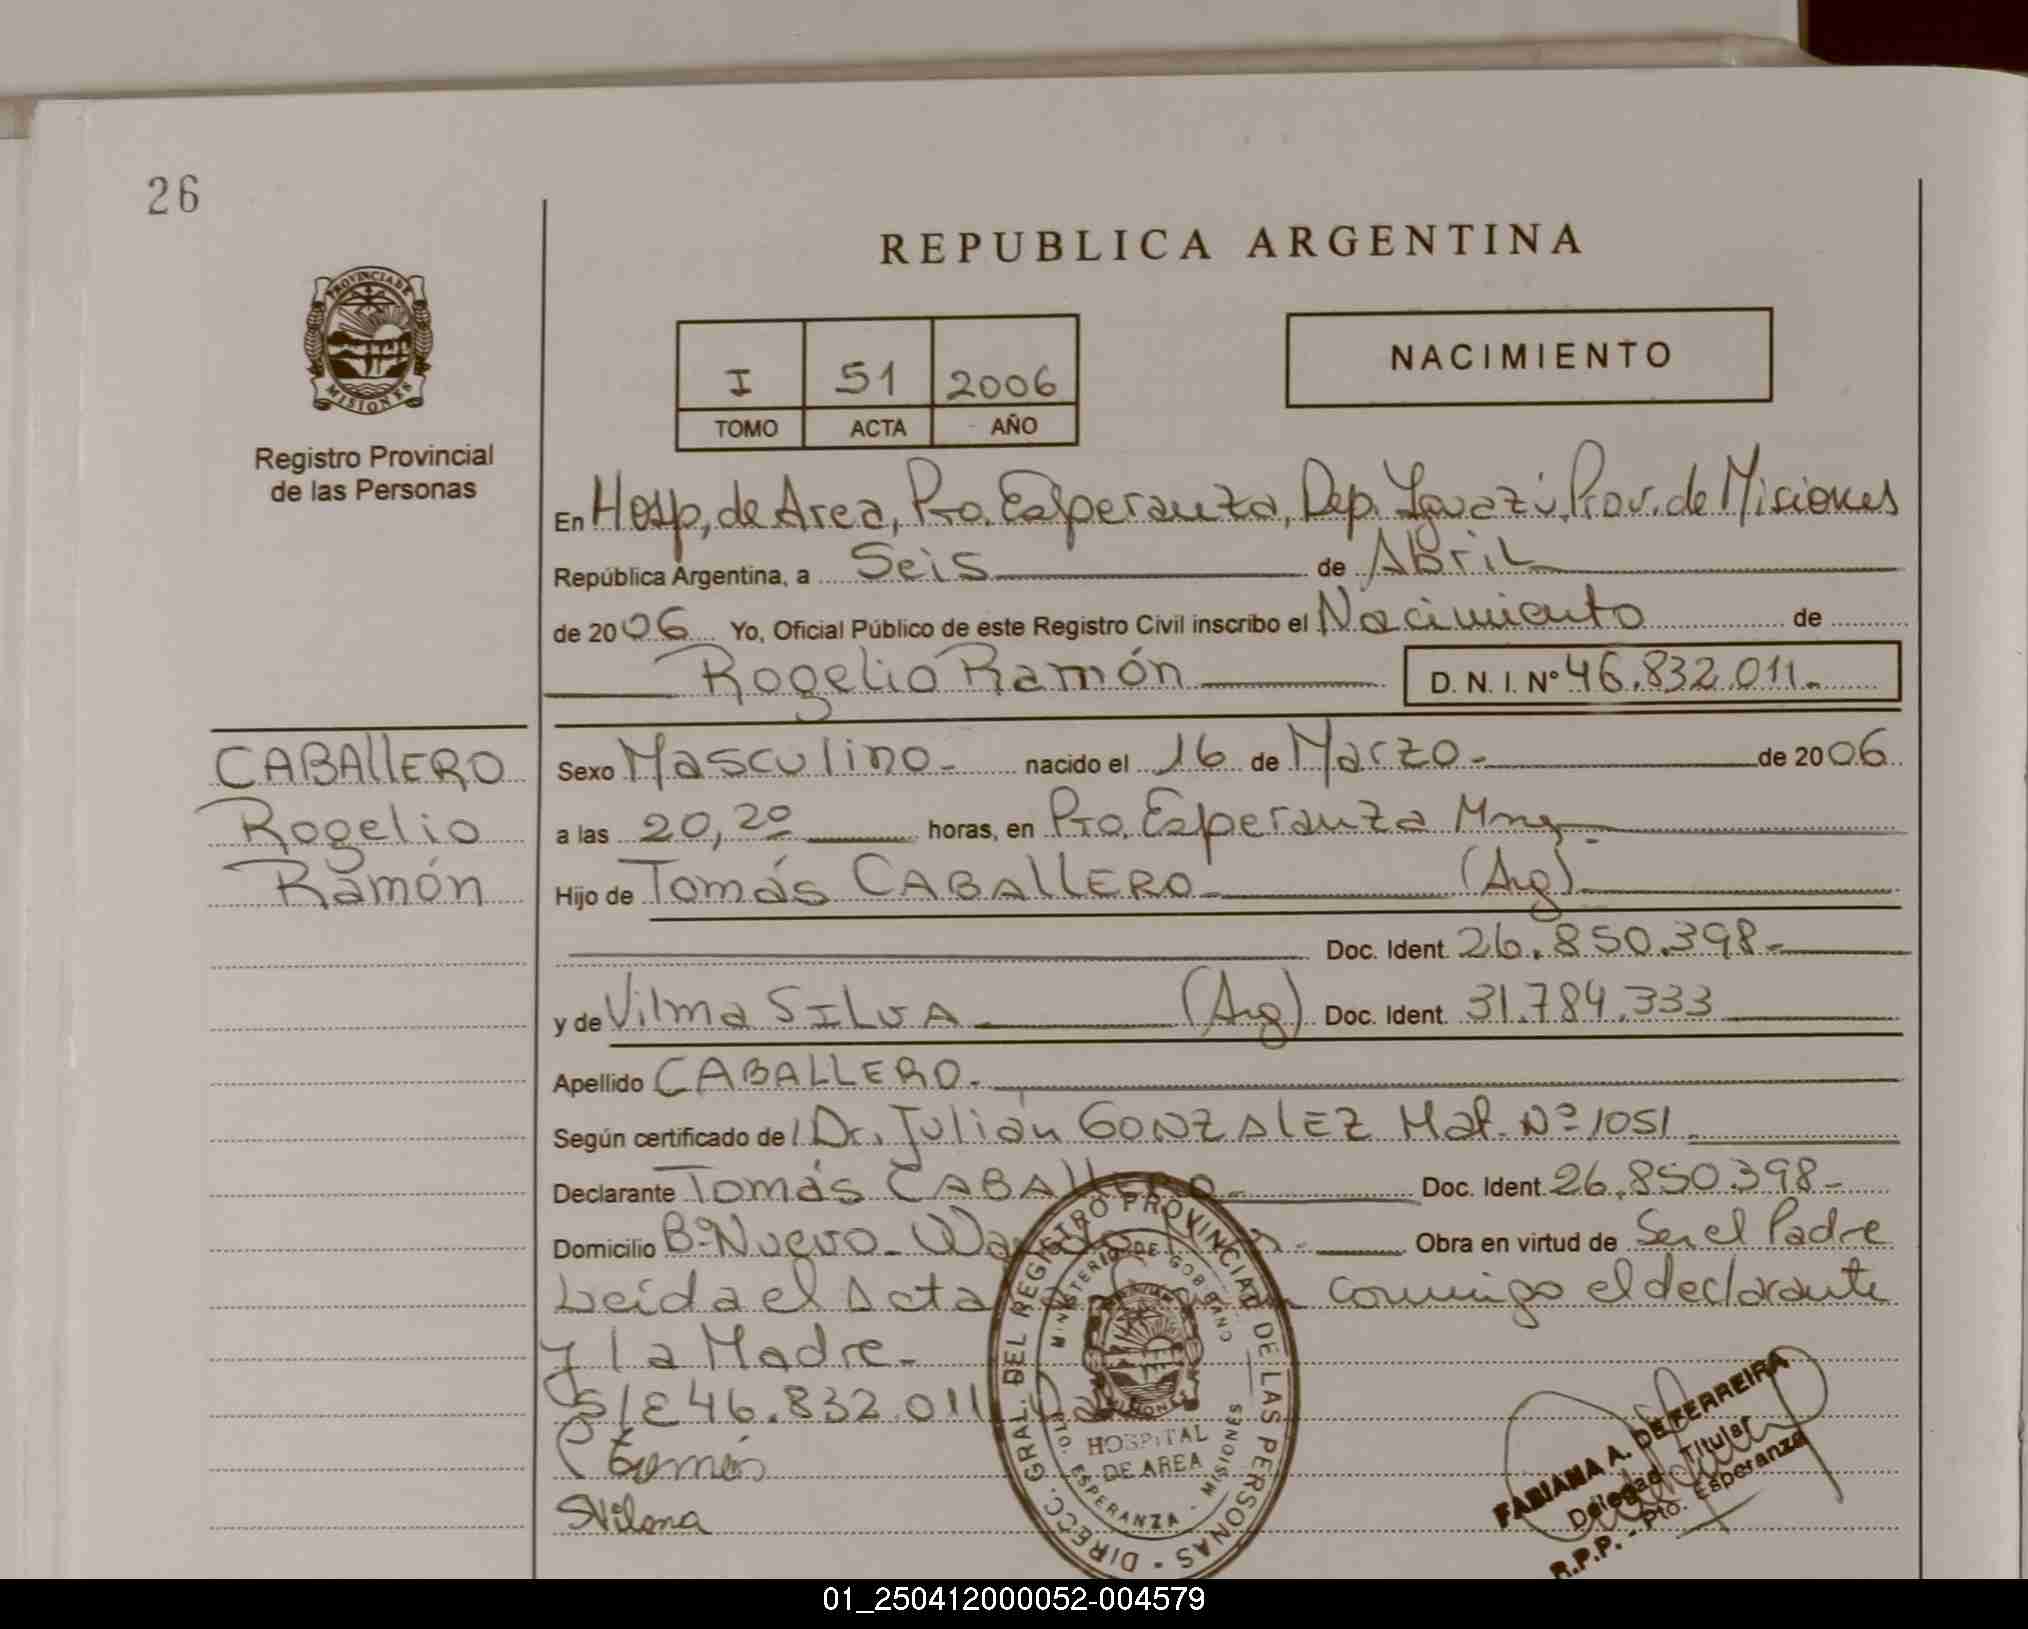 26
REPUBLICA ARGENTINA
PROVINCIA DE
MISIONES
Registro Provincial
de las Personas
I 51 2006
TOMO ACTA AÑO
NACIMIENTO
En Hosp, de Area, Pto. Esperanza, Dep. Iguazú, Prov. de Misiones
República Argentina, a Seis de Abril
de 2006 Yo, Oficial Público de este Registro Civil inscribo el Nacimiento de
Rogelio Ramón D. N. I. Nº 46.832.011.-
CABAllERO
Rogelio
Ramón
Sexo Masculino- nacido el 16 de Marzo.- de 2006
a las 20,20 horas, en Pto. Esperanza Mnes
Hijo de Tomás CABAllERO- (Arg).
Doc. Ident. 26.850.398.-
y de Vilma SILVA (Arg) Doc. Ident. 31.784.333
Apellido CABALLERO.
Según certificado de Dr. Julián GONZALEZ Mat. Nº 1051
Declarante Tomás CABALLERO- Doc. Ident. 26.850.398-
Domicilio Bº Nuevo- Obra en virtud de Ser el Padre
Leída el Acta conmigo el declarante
y la Madre.-
S/E 46.832.011
C Tomás
S Vilma
DIRECC. GRAL. DEL REGISTRO PROVINCIAL DE LAS PERSONAS
MINISTERIO DE GOBIERNO
HOSPITAL
DE AREA
PTO. ESPERANZA - MISIONES
FABIANA A. DE FERREIRA
Delegada Titular
R.P.P. - Pto. Esperanza
01_250412000052-004579